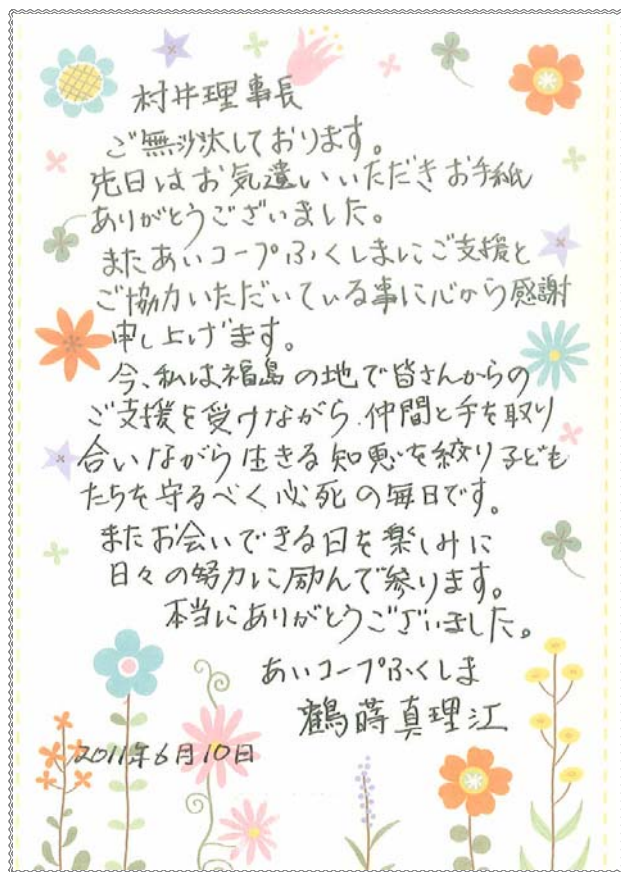 村井理事長
ご無沙汰しております。
先日はお気遣いいただきお手紙
ありがとうございました。
またあいコープふくしまにご支援と
ご協力いただいている事に心から感謝
申し上げます。
今、私は福島の地で皆さんからの
ご支援を受けながら、仲間と手を取り
合いながら生きる知恵を絞り子ども
たちを守るべく必死の毎日です。
またお会いできる日を楽しみに
日々の努力に励んで参ります。
本当にありがとうございました。
あいコープふくしま
鶴蒔真理江
2011年6月10日